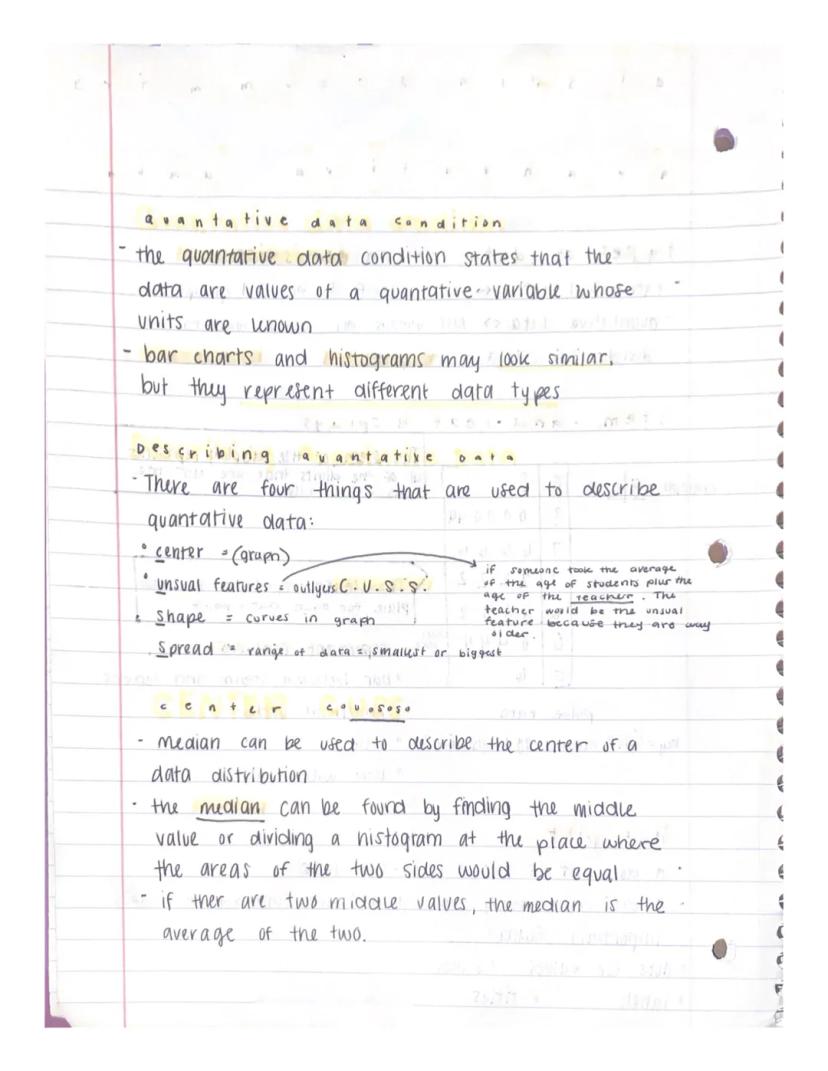 quantative data condition
- the quantative data condition states that the
data are values of a quantative variable whose
units are known
- bar charts and histograms may look similar,
but they represent different data types
Describing quantative Data
- There are four things that are used to describe
quantative data:
• center = (graph)
• unsual features = outlyers C.U.S.S.
• shape = curves in graph
• Spread = range of data = smallest or biggest
if someone took the average
of the age of students plus the
age of the teacher. The
teacher would be the unsual
feature because they are way
older.
center C.U.S.S.
- median can be used to describe the center of a
data distribution
• the median can be found by finding the middle
value or dividing a histogram at the place where
the areas of the two sides would be equal
- if ther are two middle values, the median is the
average of the two.